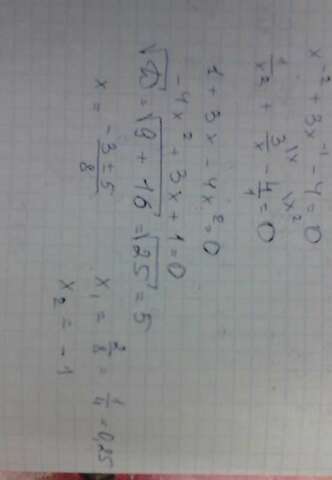 x⁻² + 3x⁻¹ - 4 = 0
1/x² + 3/x \x - 4/1 \x² = 0
1 + 3x - 4x² = 0
-4x² + 3x + 1 = 0
√D = √9 + 16 = √25 = 5
x = -3 ± 5 / 8
x₁ = 2/8 = 1/4 = 0,25
x₂ = -1